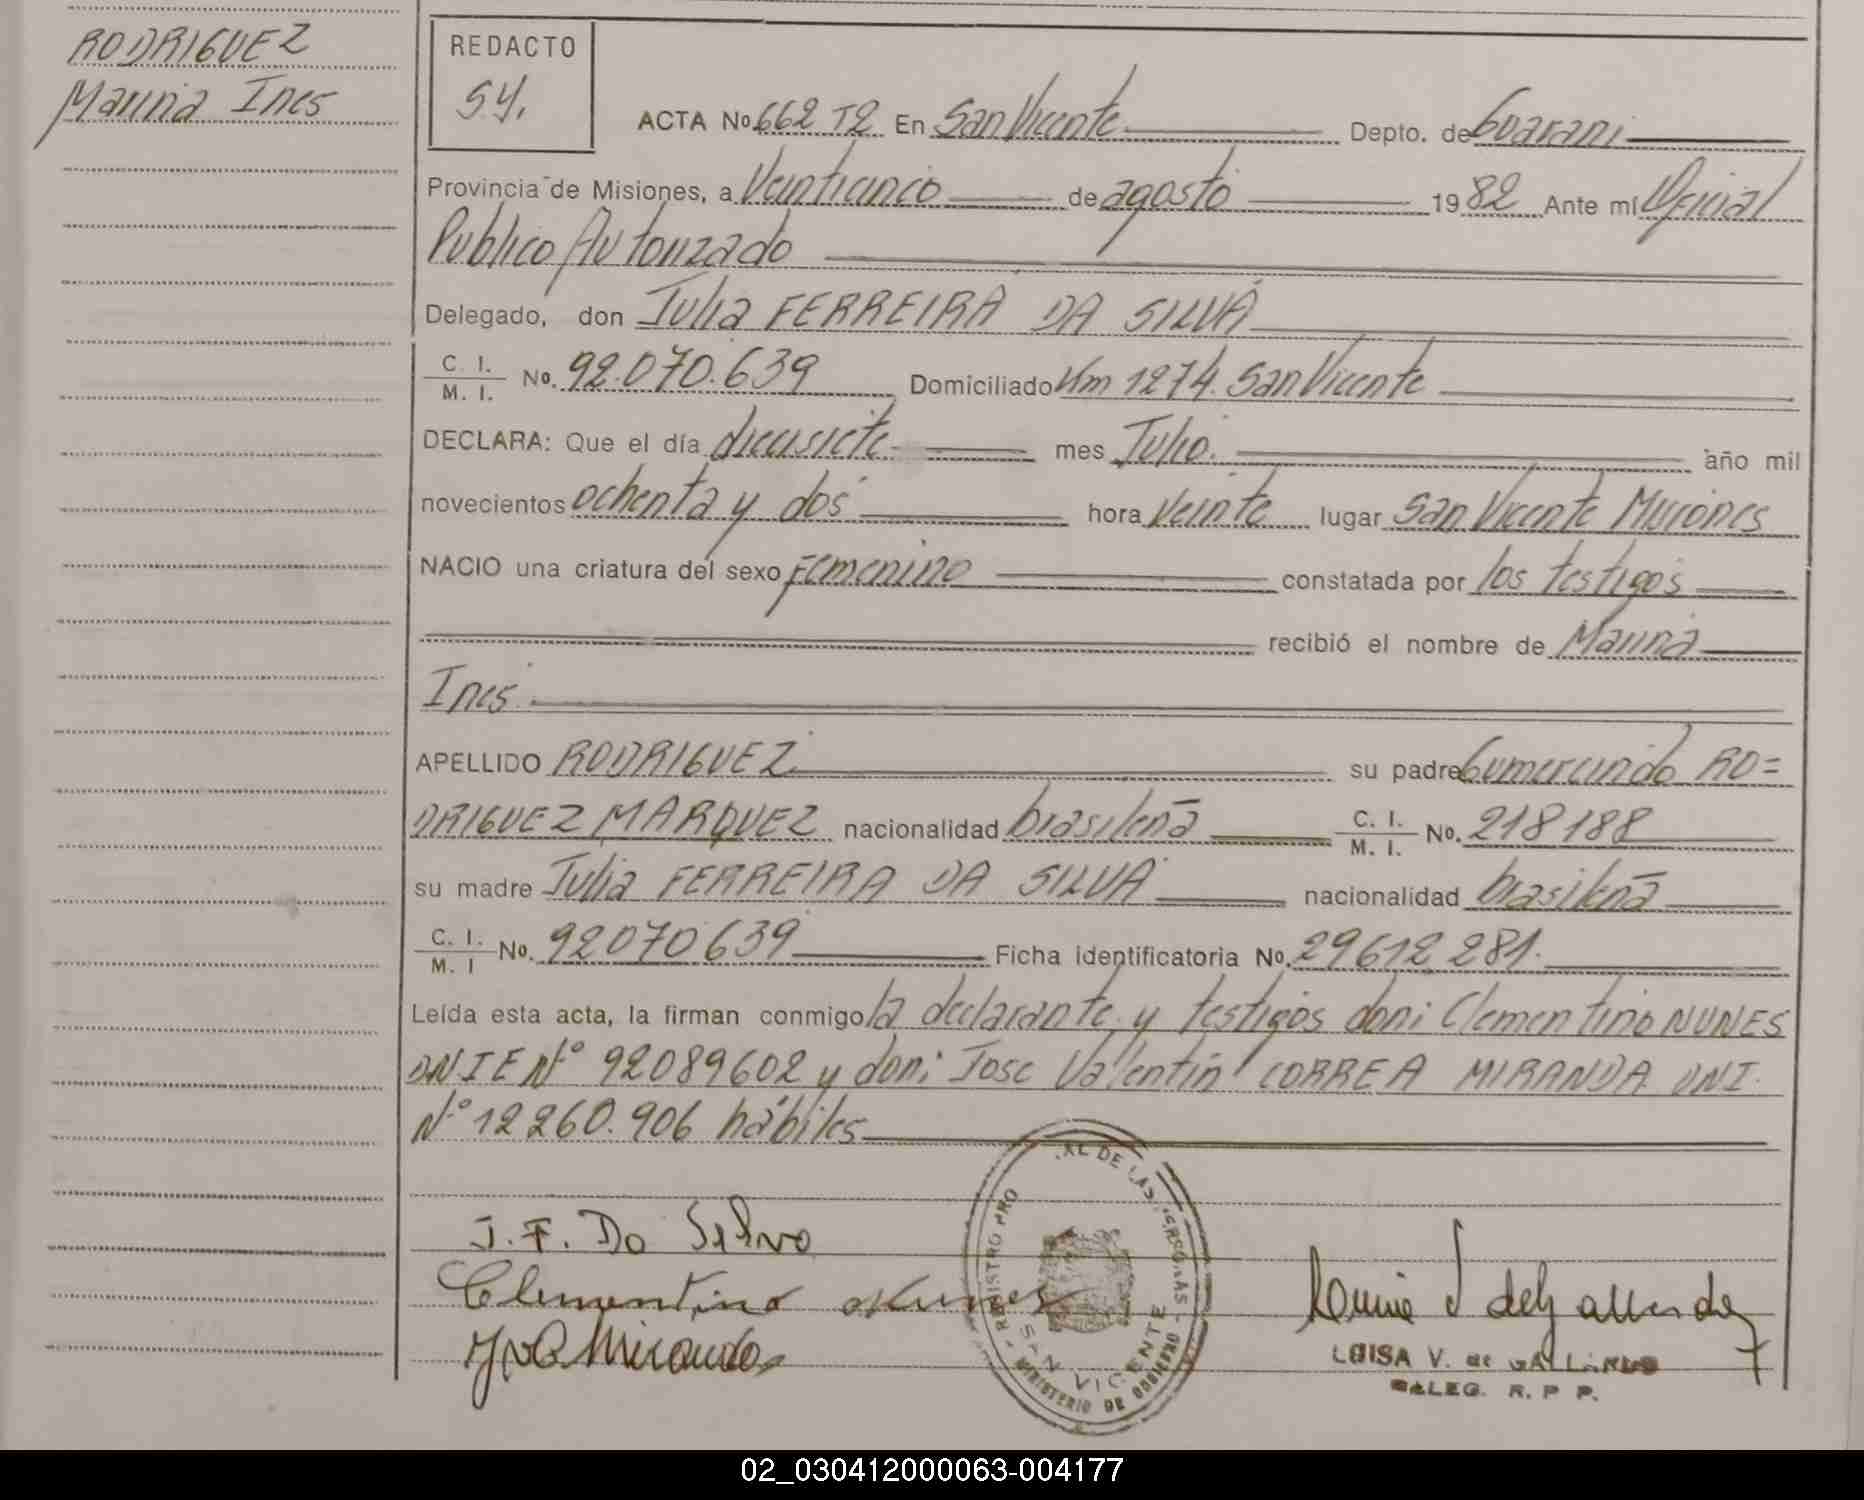 RODRIGUEZ
Marina Ines
REDACTO
S.Y.
ACTA No. 662 T2 En San Vicente Depto. de Guarani
Provincia de Misiones, a Veinticinco de agosto 1982 Ante mí Oficial
Publico Autorizado
Delegado, don Julia FERREIRA DA SILVA
C. I. / M. I. No. 92.070.639 Domiciliado Km 1274. San Vicente
DECLARA: Que el día diecisiete mes Julio. año mil
novecientos ochenta y dos hora veinte lugar San Vicente Misiones
NACIO una criatura del sexo Femenino constatada por los testigos
recibió el nombre de Marina
Ines.
APELLIDO RODRIGUEZ su padre Gumercindo RO=
DRIGUEZ MARQUEZ nacionalidad brasileña C. I. / M. I. No. 218188
su madre Julia FERREIRA DA SILVA nacionalidad brasileña
C. I. / M. I No. 92070639 Ficha identificatoria No. 29612281.
Leída esta acta, la firman conmigo la declarante y testigos don: Clementino NUNES
DNIE N° 92089602 y don: Jose Valentin CORREA MIRANDA DNI.
N° 12260.906 hábiles
J. F. Da Silva
Clementino Nunes
Miranda
REGISTRO PRO AL DE LAS PERSONAS
SAN VICENTE
MINISTERIO DE GOBIERNO
LUISA V. de GALLARDO
DELEG. R. P P.
02_030412000063-004177